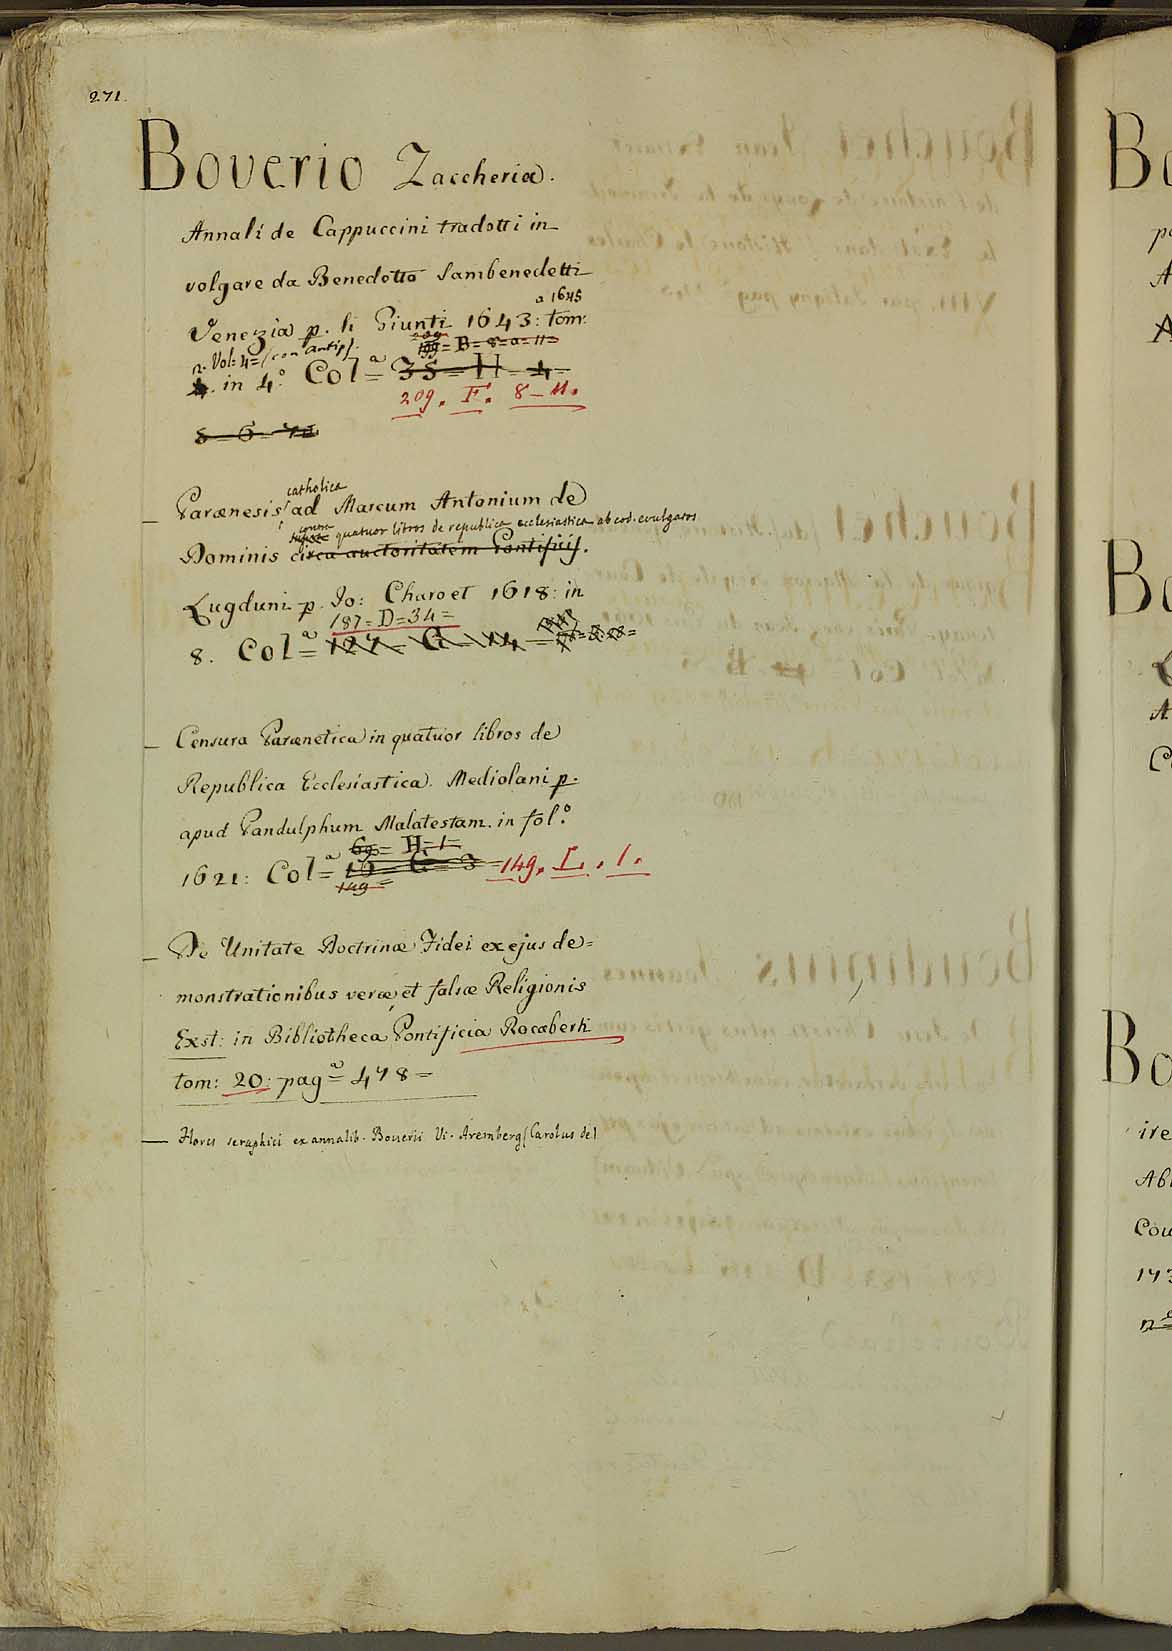 271.
Boverio Zaccheria.
Annali de Cappuccini tradotti in
volgare da Benedetto Sambenedetti
a 1645
Venezia p. li Giunti 1643: tom:
n. Vol: 4= (con antip).
209 = B = 8 = a = 11 =
4. in 4.º Col.ª = 35 = H = 4 =
209. F. 8 - 11.
5 = 6 =
catholica
— Parænesis ad Marcum Antonium de
contra quatuor libros de republica ecclesiastica ab eod. evulgatos
Dominis circa auctoritatem Pontificis.
Lugduni p. Jo: Charoet 1618: in
187 = D = 34 =
8. Col.ª = 127 = G = 14 =
— Censura Parænetica in quatuor libros de
Republica Ecclesiastica. Mediolani p.
apud Pandulphum Malatestam. in fol.º
69 = H = 1 =
1621: Col.ª = 19 = G = 3 = 149. I. 1.
149 =
— De Unitate Doctrinæ Fidei ex ejus de=
monstrationibus veræ, et falsæ Religionis
Exst: in Bibliotheca Pontificia Rocaberti
tom: 20: pag.ª 478 =
— Flores seraphici ex annalib. Boverii Vi. Aremberg (Carolus de)
Bo
Bo
Bo
Abl
Cou